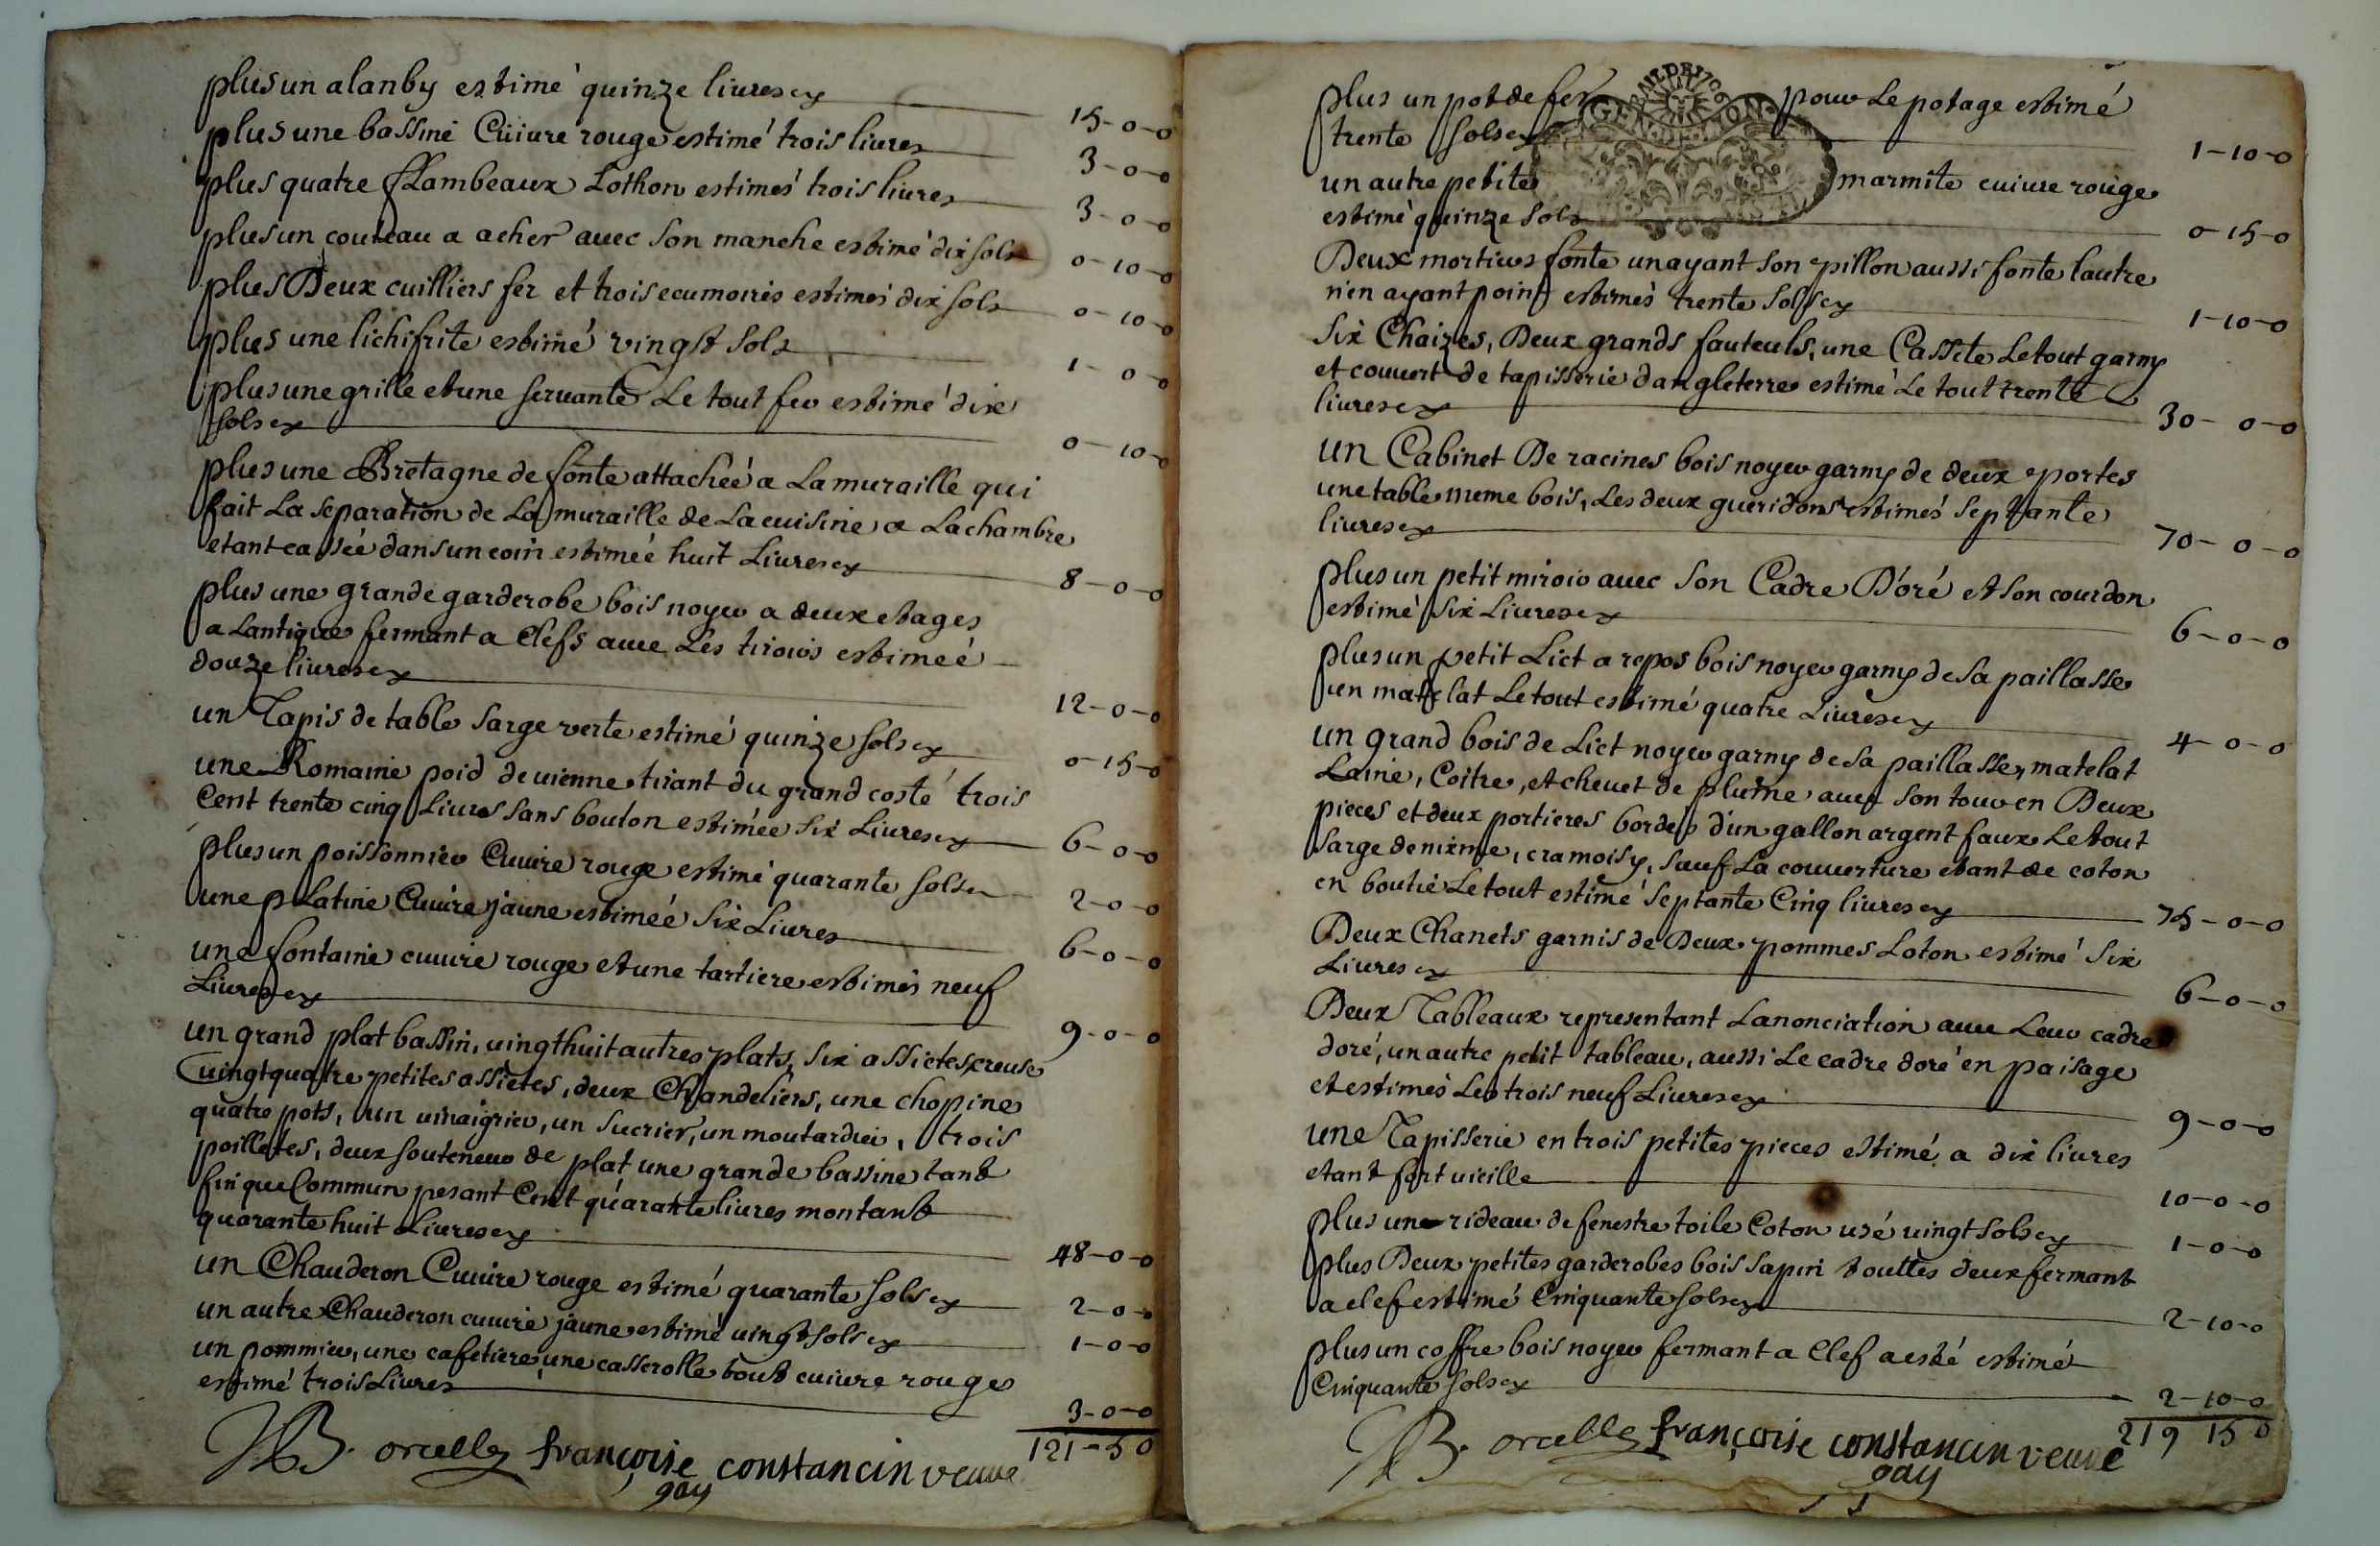 plus un alanby estimé quinze livres
15-0-0
plus une bassine Cuivre rouge estimé trois livres
3-0-0
plus quatre fLambeaux Lothon estimés trois livres
3-0-0
plus un couteau a acher avec son manche estimé dix sols
0-10-0
plus Deux cuilliers fer et trois ecumoires estimés dix sols
0-10-0
plus une lichifrite estimé vingt sols
1-0-0
plus une grille et une servante Le tout fer estimé dix
sols
0-10-0
plus une Bretagne de fonte attachée a La muraille qui
fait La separation de La muraille de La cuisine a La chambre
etant cassée dans un coin estimée huit Livres
8-0-0
plus une grande garderobe bois noyer a deux etages
a Lantique fermant a Clefs avec Les tiroirs estimée
douze livres
12-0-0
un Tapis de table sarge verte estimé quinze sols
0-15-0
une Romaine poid de vienne tirant du grand costé trois
Cent trente cinq Livres sans bouton estimée six Livres
6-0-0
plus un poissonnier Cuivre rouge estimé quarante sols
2-0-0
une pLatine Cuivre jaune estimée six Livres
6-0-0
une fontaine cuivre rouge et une tartiere estimés neuf
Livres
9-0-0
un grand plat bassin, vingthuit autres plats, six assietes creuse
vingtquatre petites assietes, deux Chandeliers, une chopine
quatre pots, un vinaigrier, un sucrier, un moutardier, trois
poilletes, deux souteneur de plat une grande bassine tant
fin que Commun pesant Cent quarante livres montant
quarante huit Livres
48-0-0
un Chauderon Cuivre rouge estimé quarante sols
2-0-0
un autre Chauderon cuivre jaune estimé vingt sols
1-0-0
un pommier, une cafetiere, une casserolle tout cuivre rouge
estimé trois Livres
3-0-0
121-5 0
françoise constancin veuve
gay
plus un pot de fer pour Le potage estimé
trente sols
1-10-0
GEN. D. LION
un autre petite marmite cuivre rouge
estimé quinze sols
0-15-0
Deux mortiers fonte un ayant son pillon aussi fonte lautre
n'en ayant point estimés trente sols
1-10-0
six Chaizes, Deux grands fauteuls, une Cassete Le tout garny
et couvert de tapisserie dangleterre estimé Le tout trente
livres
30-0-0
un Cabinet De racines bois noyer garny de deux portes
une table meme bois, Les deux gueridons estimés septante
livres
70-0-0
plus un petit miroir avec son Cadre D'oré et son courdon
estimé six Livres
6-0-0
plus un petit Lict a repos bois noyer garny de sa paillasse
un matelat Le tout estimé quatre Livres
4-0-0
un grand bois de Lict noyer garny de sa paillasse, matelat
Laine, Coitre, et chevet de plume avec son tour en Deux
pieces et deux portieres bordés d'un gallon argent faux Le tout
sarge de nisme, cramoisy, sauf La couverture etant de coton
en boutie Le tout estimé septante Cinq livres
75-0-0
Deux Chanets garnis de Deux pommes Loton estimé six
Livres
6-0-0
Deux Tableaux representant Lanonciation avec Leur cadre
doré, un autre petit tableau, aussi Le cadre doré en paisage
et estimés Les trois neuf Livres
9-0-0
une Tapisserie en trois petites pieces estimé a dix livres
etant fort vieille
10-0-0
plus un rideau de fenestre toile Coton usé vingt sols
1-0-0
plus Deux petites garderobes bois sapin touttes deux fermant
a clef estimé Cinquante sols
2-10-0
plus un coffre bois noyer fermant a Clef a esté estimé
Cinquante sols
2-10-0
219 15 0
françoise constancin veuve
gay